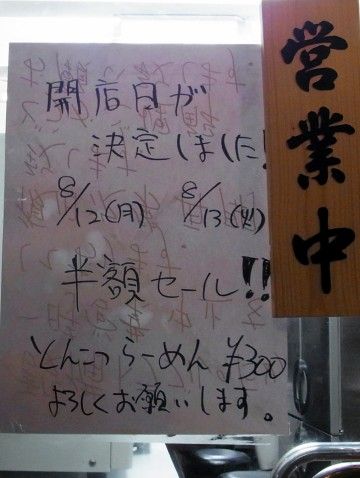 開店日が
決定しました!
8/12(月) 8/13(火)
半額セール!!
とんこつらーめん ¥300
よろしくお願いします。
営業中